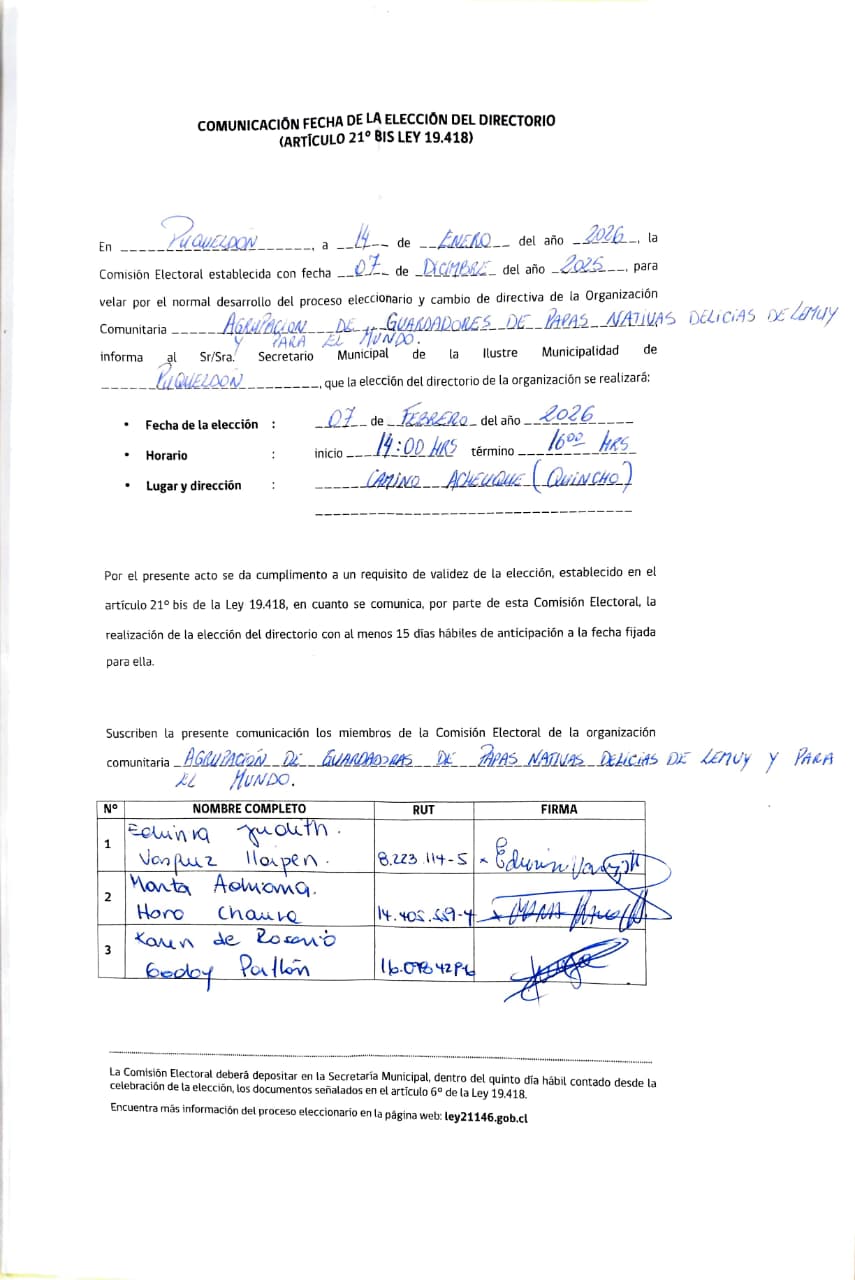 COMUNICACIÓN FECHA DE LA ELECCIÓN DEL DIRECTORIO
(ARTÍCULO 21º BIS LEY 19.418)
En PUQUELDÓN, a 14 de ENERO del año 2026, la
Comisión Electoral establecida con fecha 07 de DICIMBRE del año 2025, para
velar por el normal desarrollo del proceso eleccionario y cambio de directiva de la Organización
Comunitaria AGRUPACION DE GUARDADORES DE PAPAS NATIVAS DELICIAS DE LEMUY
Y PARA EL MUNDO.
informa al Sr/Sra. Secretario Municipal de la Ilustre Municipalidad de
PUQUELDÓN, que la elección del directorio de la organización se realizará:
• Fecha de la elección : 07 de FEBRERO del año 2026
• Horario : inicio 14:00 HRS término 16:00 HRS
• Lugar y dirección : CAMINO ACHEUQUE (QUINCHO)
Por el presente acto se da cumplimento a un requisito de validez de la elección, establecido en el
artículo 21º bis de la Ley 19.418, en cuanto se comunica, por parte de esta Comisión Electoral, la
realización de la elección del directorio con al menos 15 días hábiles de anticipación a la fecha fijada
para ella.
Suscriben la presente comunicación los miembros de la Comisión Electoral de la organización
comunitaria AGRUPACIÓN DE GUARDADORAS DE PAPAS NATIVAS DELICIAS DE LEMUY Y PARA
EL MUNDO.
Nº NOMBRE COMPLETO RUT FIRMA
1 Edinia Judith.
8.223.114-5
2 Marta Adriana.
Haro Chaura 14.405.559-4
3 Karen de Rosario
Godoy
La Comisión Electoral deberá depositar en la Secretaría Municipal, dentro del quinto día hábil contado desde la
celebración de la elección, los documentos señalados en el artículo 6º de la Ley 19.418.
Encuentra más información del proceso eleccionario en la página web: ley21146.gob.cl